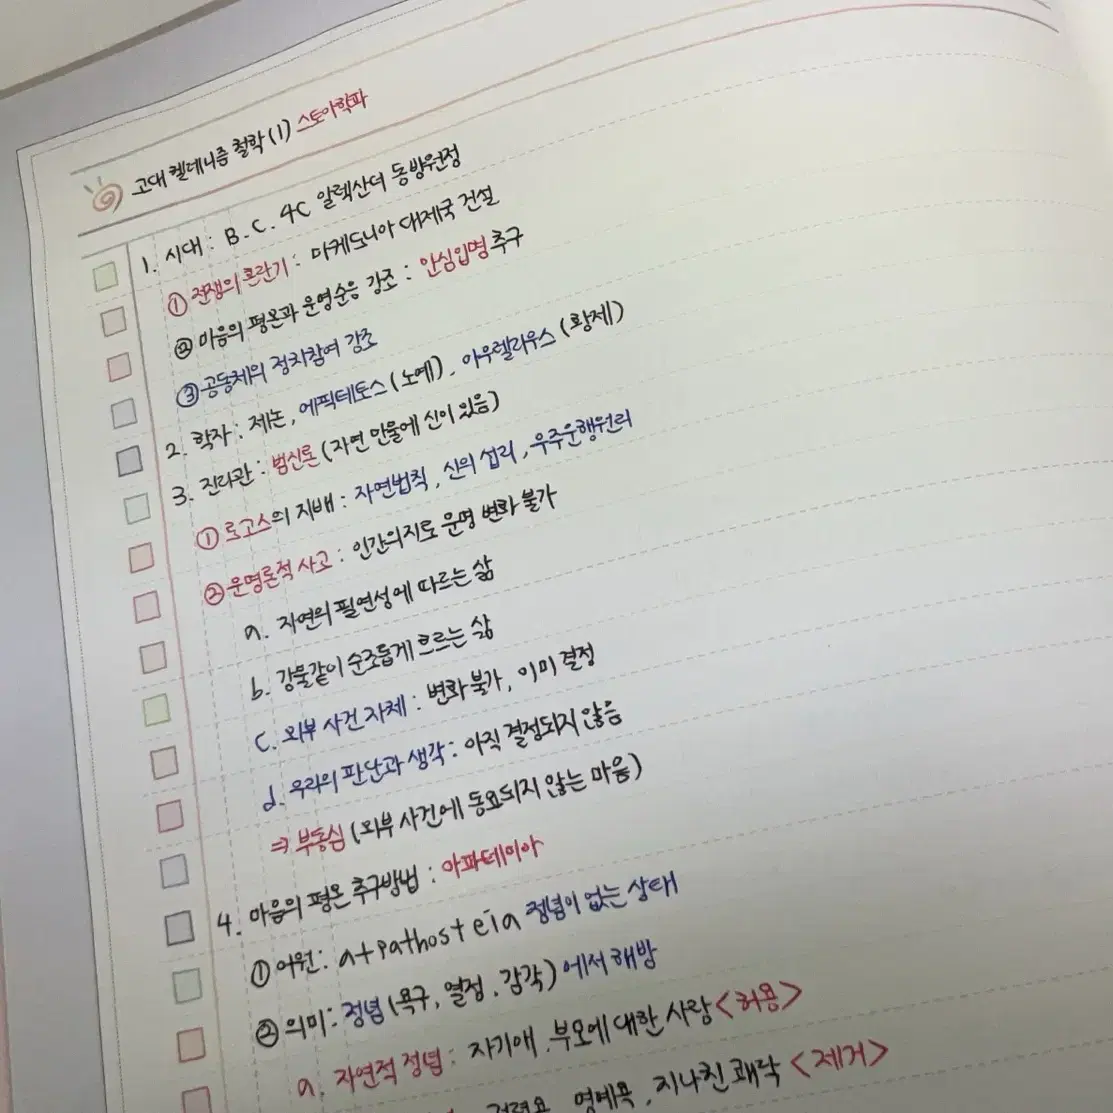 고대 헬레니즘 철학(1) 스토아학파
1. 시대 : B.C. 4C 알렉산더 동방원정
① 전쟁의 혼란기 : 마케도니아 대제국 건설
② 마음의 평온과 운명순응 강조 : 안심입명 추구
③ 공동체의 정치참여 강조
2. 학자 : 제논, 에픽테토스(노예), 아우렐리우스(황제)
3. 진리관 : 범신론(자연 만물에 신이 있음)
① 로고스의 지배 : 자연법칙, 신의 섭리, 우주운행원리
② 운명론적 사고 : 인간의지로 운명 변화 불가
a. 자연의 필연성에 따르는 삶
b. 강물같이 순조롭게 흐르는 삶
c. 외부 사건 자체 : 변화 불가, 이미 결정
d. 우리의 판단과 생각 : 아직 결정되지 않음
⇒ 부동심(외부 사건에 동요되지 않는 마음)
4. 마음의 평온 추구방법 : 아파테이아
① 어원 : a+pathos+eia 정념이 없는 상태
② 의미 : 정념(욕구, 열정, 감각)에서 해방
a. 자연적 정념 : 자기애, 부모에 대한 사랑<허용>
명예욕, 지나친 쾌락 <제거>